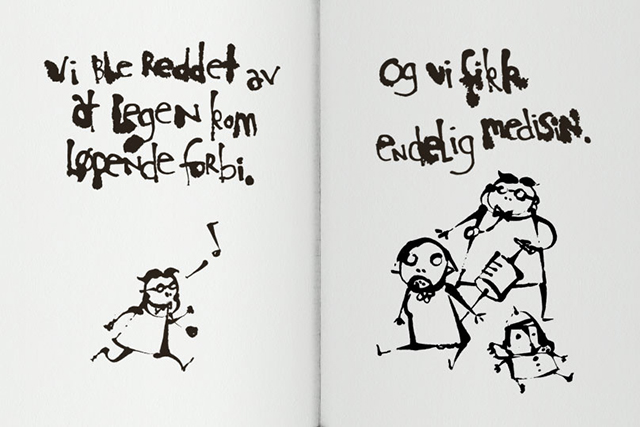 Vi ble reddet av
at legen kom
løpende forbi.
Og vi fikk
endelig medisin.